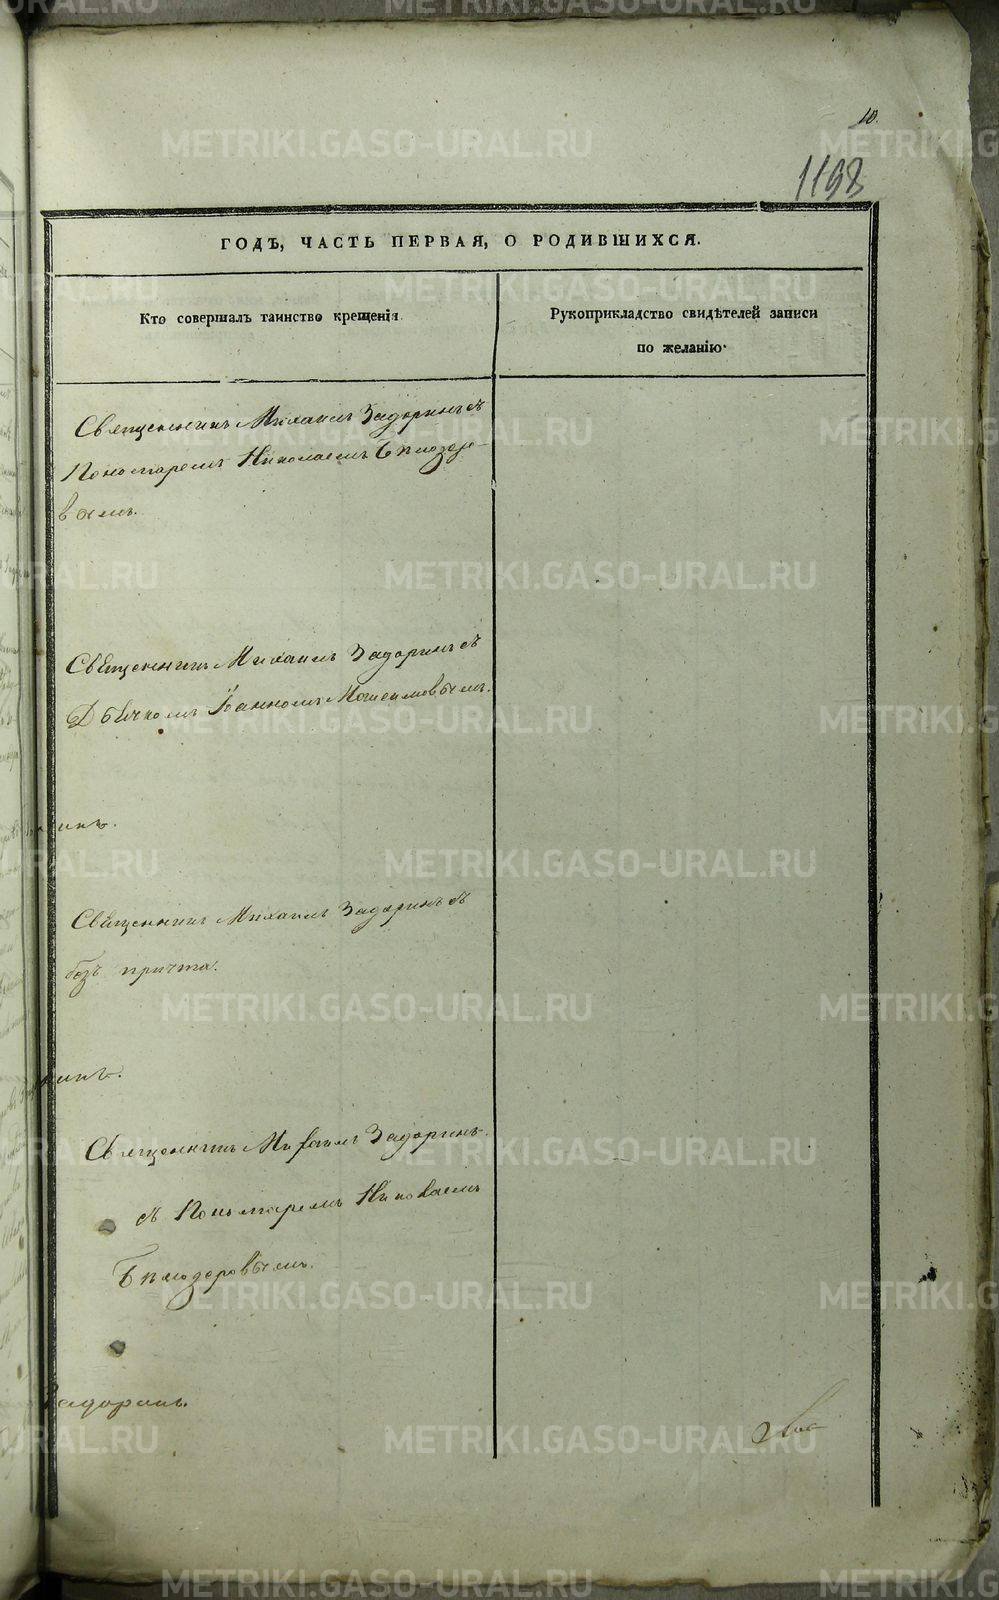 10.
1198
ГОДЪ, ЧАСТЬ ПЕРВАЯ, О РОДИВШИХСЯ.
Кто совершалъ таинство крещенія
Рукоприкладство свидѣтелей записи
по желанію.
Священникъ Михаилъ Задоринъ съ
Пономаремъ Николаемъ Бѣлозеро-
вымъ.
Священникъ Михаилъ Задоринъ съ
Дьячкомъ Іоанном
Священникъ Михаилъ Задоринъ
безъ причта.
Священникъ Михаилъ Задоринъ
съ Пономаремъ Николаемъ
Бѣлозеровымъ.
Задоринъ.
METRIKI.GASO-URAL.RU